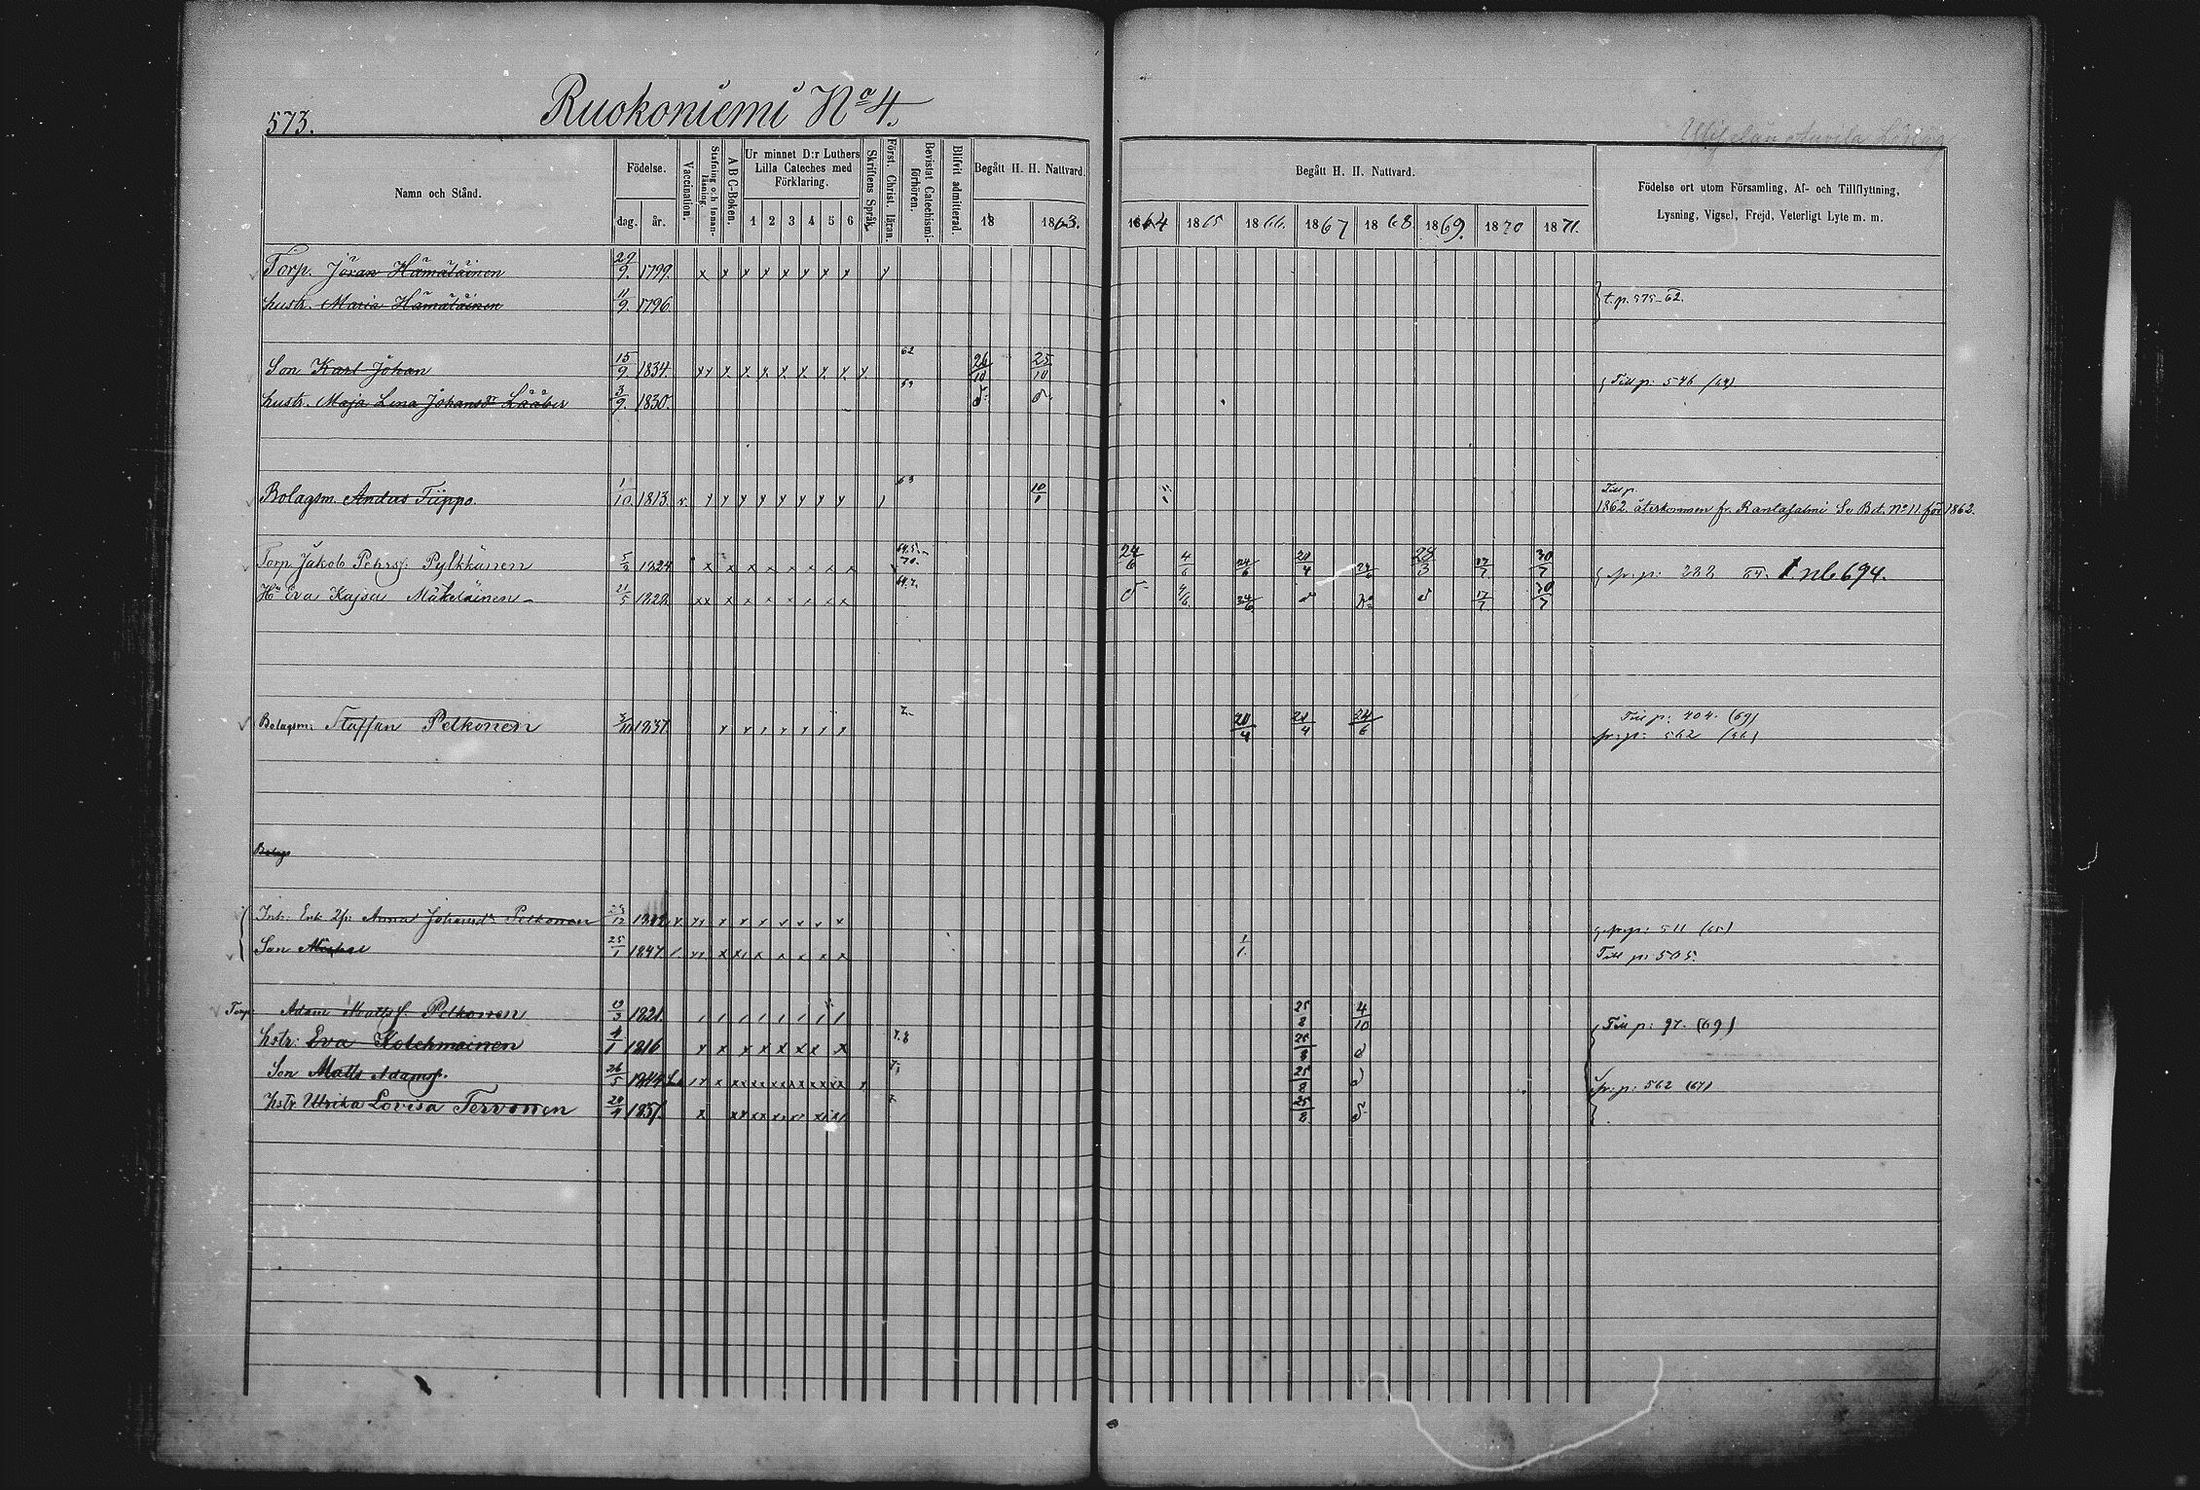 573.
Ruokoniemi No 4.
Namn och Stånd.
Födelse.
dag. år.
Vaccination.
Stafning och Innanläsning.
A B C-Boken.
Ur minnet D:r Luthers Lilla Cateches med Förklaring.
1 2 3 4 5 6
Skriftens Språk.
Först. Christ. läran.
Bevistat Catechismiförhören.
Blifvit admitterad.
Begått H. H. Nattvard.
18 1863.
Begått H. H. Nattvard.
1864 1865 1866 1867 1868 1869. 1870 1871.
Födelse ort utom Församling, Af- och Tillflyttning,
Lysning, Vigsel, Frejd, Veterligt Lyte m. m.
Torp. Jöran Hämäläinen 29/9. 1799. x x x x x x x x x
hustr. Maria Hämäläinen 11/9. 1796. t. p. 575-62.
Son Karl Johan 15/9 1834. xx x x x x x x x x 62 26/10 25/10
hustr. Maja Lena Johansdr Lääber 3/9. 1830. Till p: 546 (64)
Bolagsm. Andus Tiippo. 1/10. 1813. v. x x x x x x x x 63 10/1 Till p.
1862. återkommen fr. Rantasalmi Se Bet. No 11 för 1862.
Torp. Jakob Pehrss. Pylkkänen 5/2 1824 x x x x x x x x 70. 24/6 4/6 24/6 20/4 24/6 28/3 17/7 30/7 fr. p: 288 64. 1 nb 694.
Hu Eva Kajsa Mäkeläinen 21/5 1822 xx x x x x x x x 4/6 24/6 17/7 30/7
Bolagsm: Staffan Pelkonen 1837. x x x x x x x 20/4 20/4 24/6 Till p: 404. (69)
fr: p: 562 (66)
Bolags
Inh: Enk: Anna Johansdr Pelkonen x x x x x x x fr. p: 511 (65)
Son Michel 25/1 1847 x x x x x x x 1/1. Till p: 505.
Torp: Adam Mattss. Pelkonen 1821. 25/8 4/10 Till p: 97. (69)
hstr: Eva Kolehmainen 4/1 1816 x x x x x x x x 25/8
Son Matts Adamss. 26/5 1844 25/8 fr: p: 562 (67)
hstr Ulrika Lovisa Tervonen 1837. 25/8